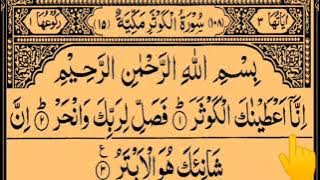 اٰیَاتُهَا ٣ (١٠٨) سُوْرَةُ الْكَوْثَرِ مَكِّیَّةٌ (١٥) رُكُوْعُهَا ١
بِسْمِ اللّٰهِ الرَّحْمٰنِ الرَّحِیْمِ
اِنَّاۤ اَعْطَیْنٰكَ الْكَوْثَرَ ١ فَصَلِّ لِرَبِّكَ وَانْحَرْ ٢ اِنَّ
شَانِئَكَ هُوَ الْاَبْتَرُ ٣ ع